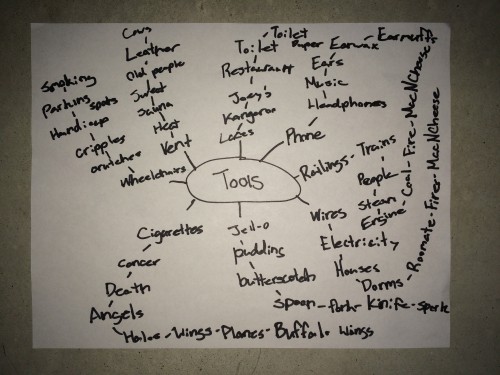 Tools
Wheelchairs
crutches
Cripples
Handicap
Parking spots
Smoking
Vent
Heat
Sauna
Sweat
Old people
Leather
Cows
Laces
Kangaroo
Joey's
Restaurant
Toilet
Toilet Paper
Phone
Headphones
Music
Ears
Earwax
Earmuffs
Railings - Trains
People
Steam
Engine - Coal - Fire - MacNCheese
Wires
Electricity
Houses
Dorms - Roomate - Fire - MacNCheese
Jell-o
Pudding
butterscotch
Spoon - fork - Knife - spork
Cigarettes
Cancer
Death
Angels
Halos - Wings - Planes - Buffalo Wings